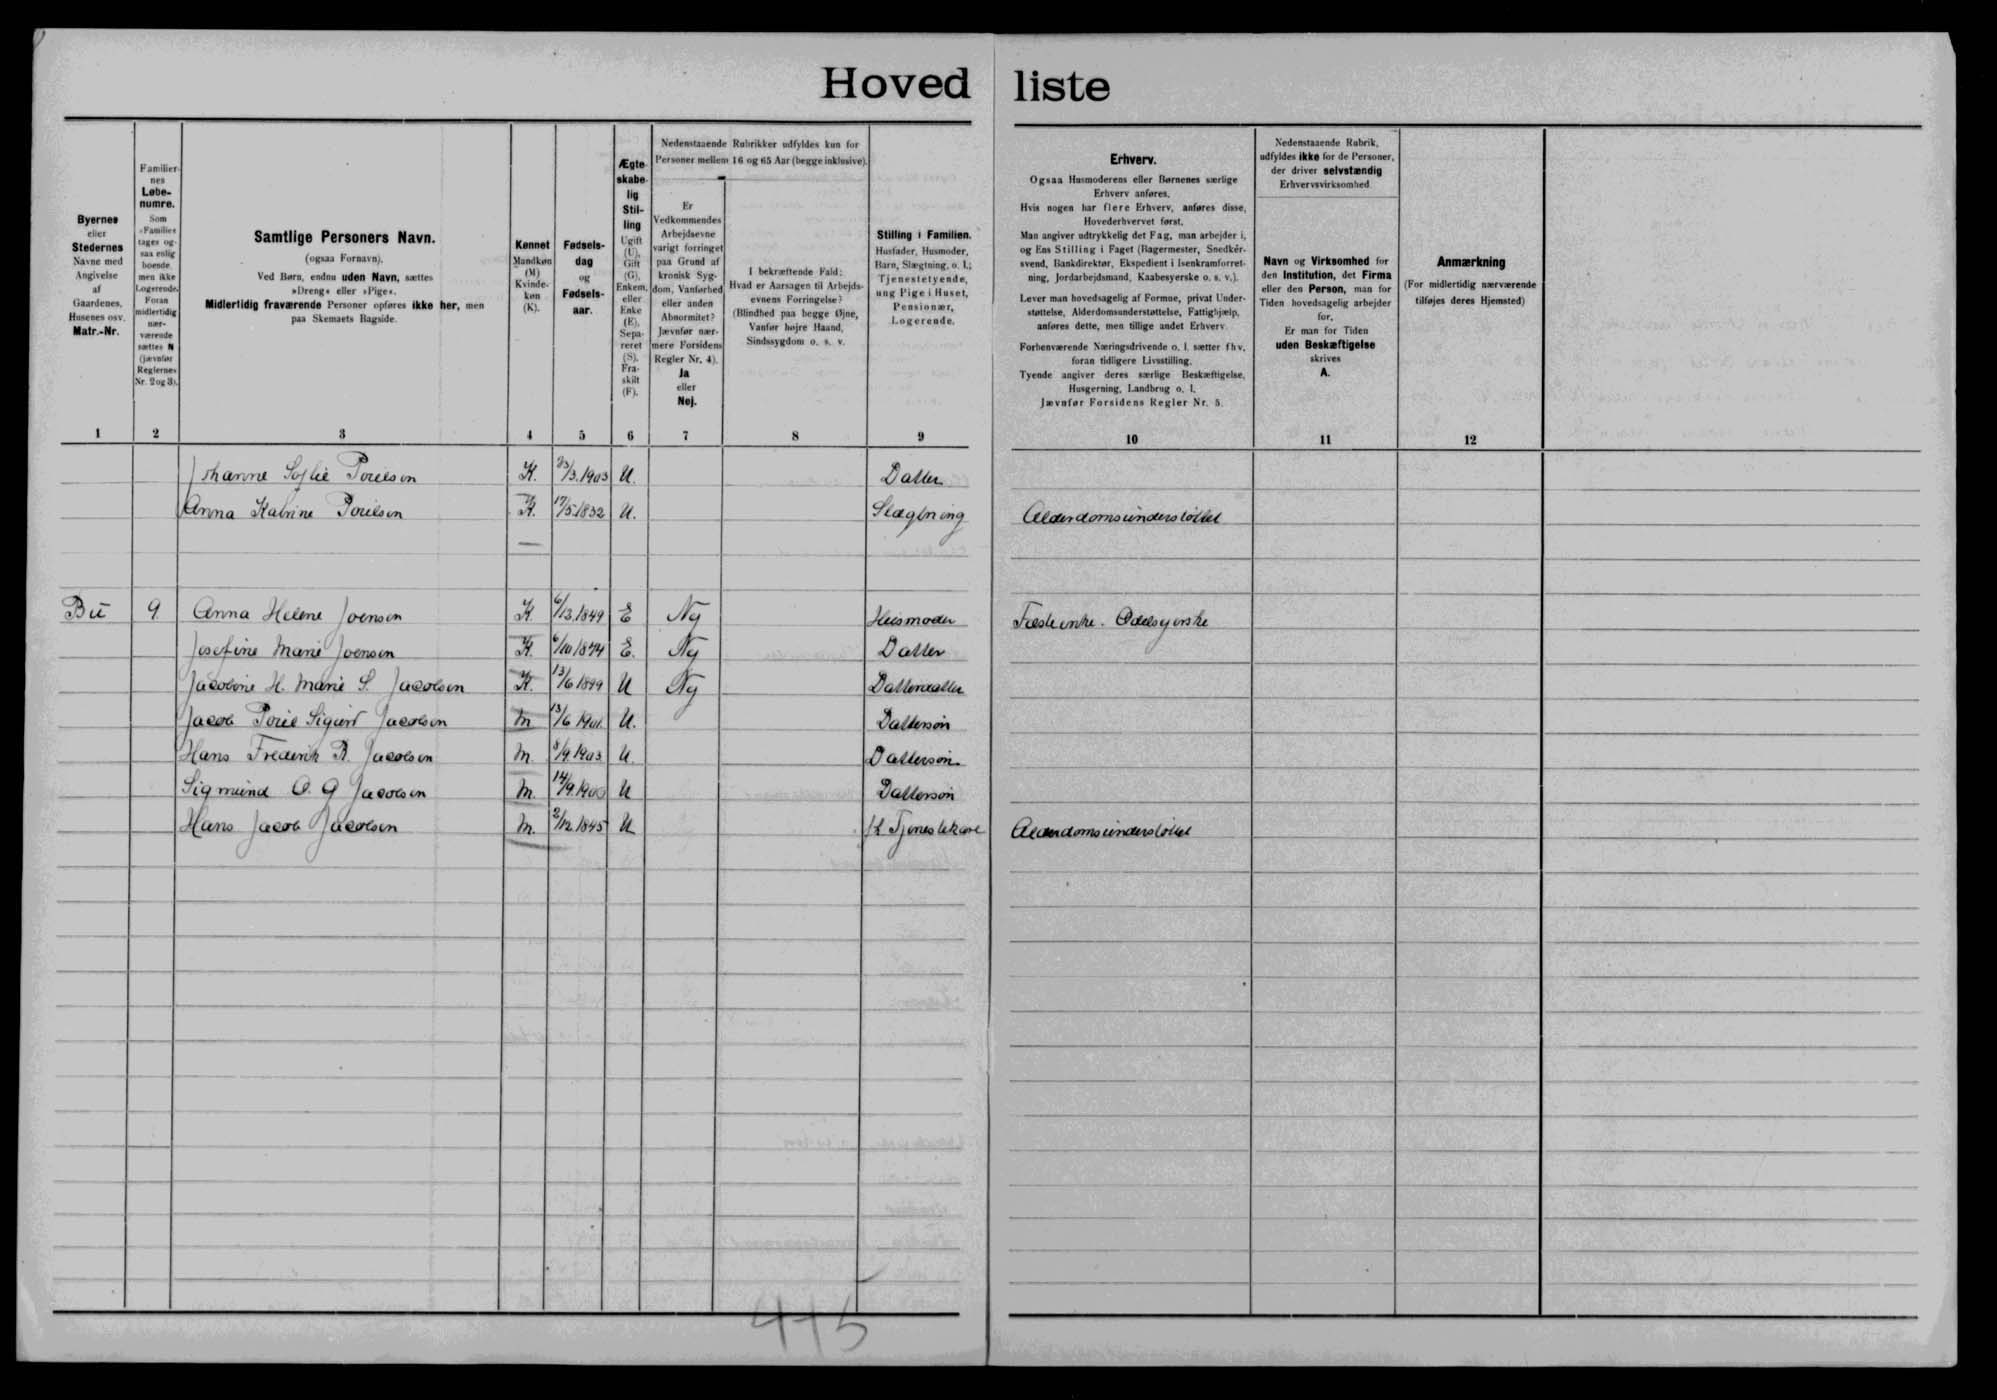 Hoved liste
Byernes
eller
Stedernes
Navne med
Angivelse
af
Gaardenes,
Husenes osv.
Matr.-Nr.
Familier-
nes
Løbe-
numre.
Som
»Familie«
tages og-
saa enlig
boende
men ikke
Logerende.
Foran
midlertidig
nær-
værende
sættes N
(jævnfør
Reglernes
Nr. 2 og 3).
Samtlige Personers Navn.
(ogsaa Fornavn).
Ved Børn, endnu uden Navn, sættes
»Dreng« eller »Pige«.
Midlertidig fraværende Personer opføres ikke her, men
paa Skemaets Bagside.
Kønnet
Mandkøn
(M)
Kvinde-
køn
(K).
Fødsels-
dag
og
Fødsels-
aar.
Ægte-
skabe-
lig
Stil-
ling
Ugift
(U),
Gift
(G),
Enkem.
eller
Enke
(E),
Sepa-
reret
(S).
Fra-
skilt
(F).
Nedenstaaende Rubrikker udfyldes kun for
Personer mellem 16 og 65 Aar (begge inklusive).
Er
Vedkommendes
Arbejdsevne
varigt forringet
paa Grund af
kronisk Syg-
dom, Vanførhed
eller anden
Abnormitet?
Jævnfør nær-
mere Forsidens
Regler Nr. 4).
Ja
eller
Nej.
I bekræftende Fald:
Hvad er Aarsagen til Arbejds-
evnens Forringelse?
(Blindhed paa begge Øjne,
Vanfør højre Haand,
Sindssygdom o. s. v.
Stilling i Familien.
Husfader, Husmoder,
Barn, Slægtning, o. l.;
Tjenestetyende,
ung Pige i Huset,
Pensionær,
Logerende.
Erhverv.
Ogsaa Husmoderens eller Børnenes særlige
Erhverv anføres.
Hvis nogen har flere Erhverv, anføres disse,
Hovederhvervet først.
Man angiver udtrykkelig det Fag, man arbejder i,
og Ens Stilling i Faget (Bagermester, Snedker-
svend, Bankdirektør, Ekspedient i Isenkramforret-
ning, Jordarbejdsmand, Kaabesyerske o. s. v.).
Lever man hovedsagelig af Formue, privat Under-
støttelse, Alderdomsunderstøttelse, Fattighjælp,
anføres dette, men tillige andet Erhverv.
Forhenværende Næringsdrivende o. l. sætter fhv.
foran tidligere Livsstilling.
Tyende angiver deres særlige Beskæftigelse,
Husgerning, Landbrug o. l.
Jævnfør Forsidens Regler Nr. 5.
Nedenstaaende Rubrik,
udfyldes ikke for de Personer,
der driver selvstændig
Erhvervsvirksomhed.
Navn og Virksomhed for
den Institution, det Firma
eller den Person, man for
Tiden hovedsagelig arbejder
for.
Er man for Tiden
uden Beskæftigelse
skrives
A.
Anmærkning
(For midlertidig nærværende
tilføjes deres Hjemsted)
1 2 3 4 5 6 7 8 9 10 11 12
Johanne Sofie Poulsen K. 23/3.1903 U. Datter
Anna Katrine Poulsen K. 17/5.1832 U. Slægtning Alderdomsunderstøttet
Bü 9. Anna Helene Joensen K. 1849 E Nej Husmoder Fæsteenke.
Josefine Marie Joensen K. 6/10 1874 E. Nej Datter
Jacobine H. Marie S. Jacobsen K. 13/6 1899 U Nej Datterdatter
Jacob Poul Sigurd Jacobsen M 13/6 1901 U. Dattersøn
Hans Frederik R. Jacobsen M. 8/9.1903 U. Dattersøn
Sigmund O. G Jacobsen M. U Dattersøn
Hans Jacob Jacobsen M. 2/12.1845 U Tjenestekarl Alderdomsunderstøttet
415